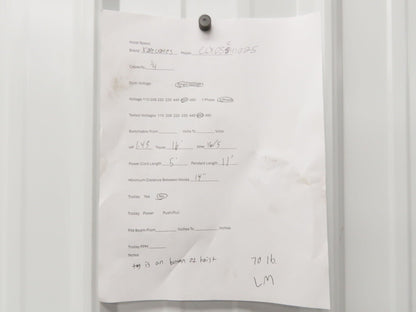 Hoist Specs:
Brand
Model
Capacity
Dual Voltage
Voltage 110 208 220 230 440 460 480 1 Phase
Tested Voltages 110 208 220 230 440 460 480
Switchable From Volts To Volts
HP Travel 16' RPM 16/5
Power Cord Length 5' Pendant Length 11'
Minimum Distance Between Hooks 14"
Trolley Yes No
Trolley Power Push/Pull
Fits Beam From Inches To Inches
Trolley FPM
Notes
is an hoist 70 lb.
LM